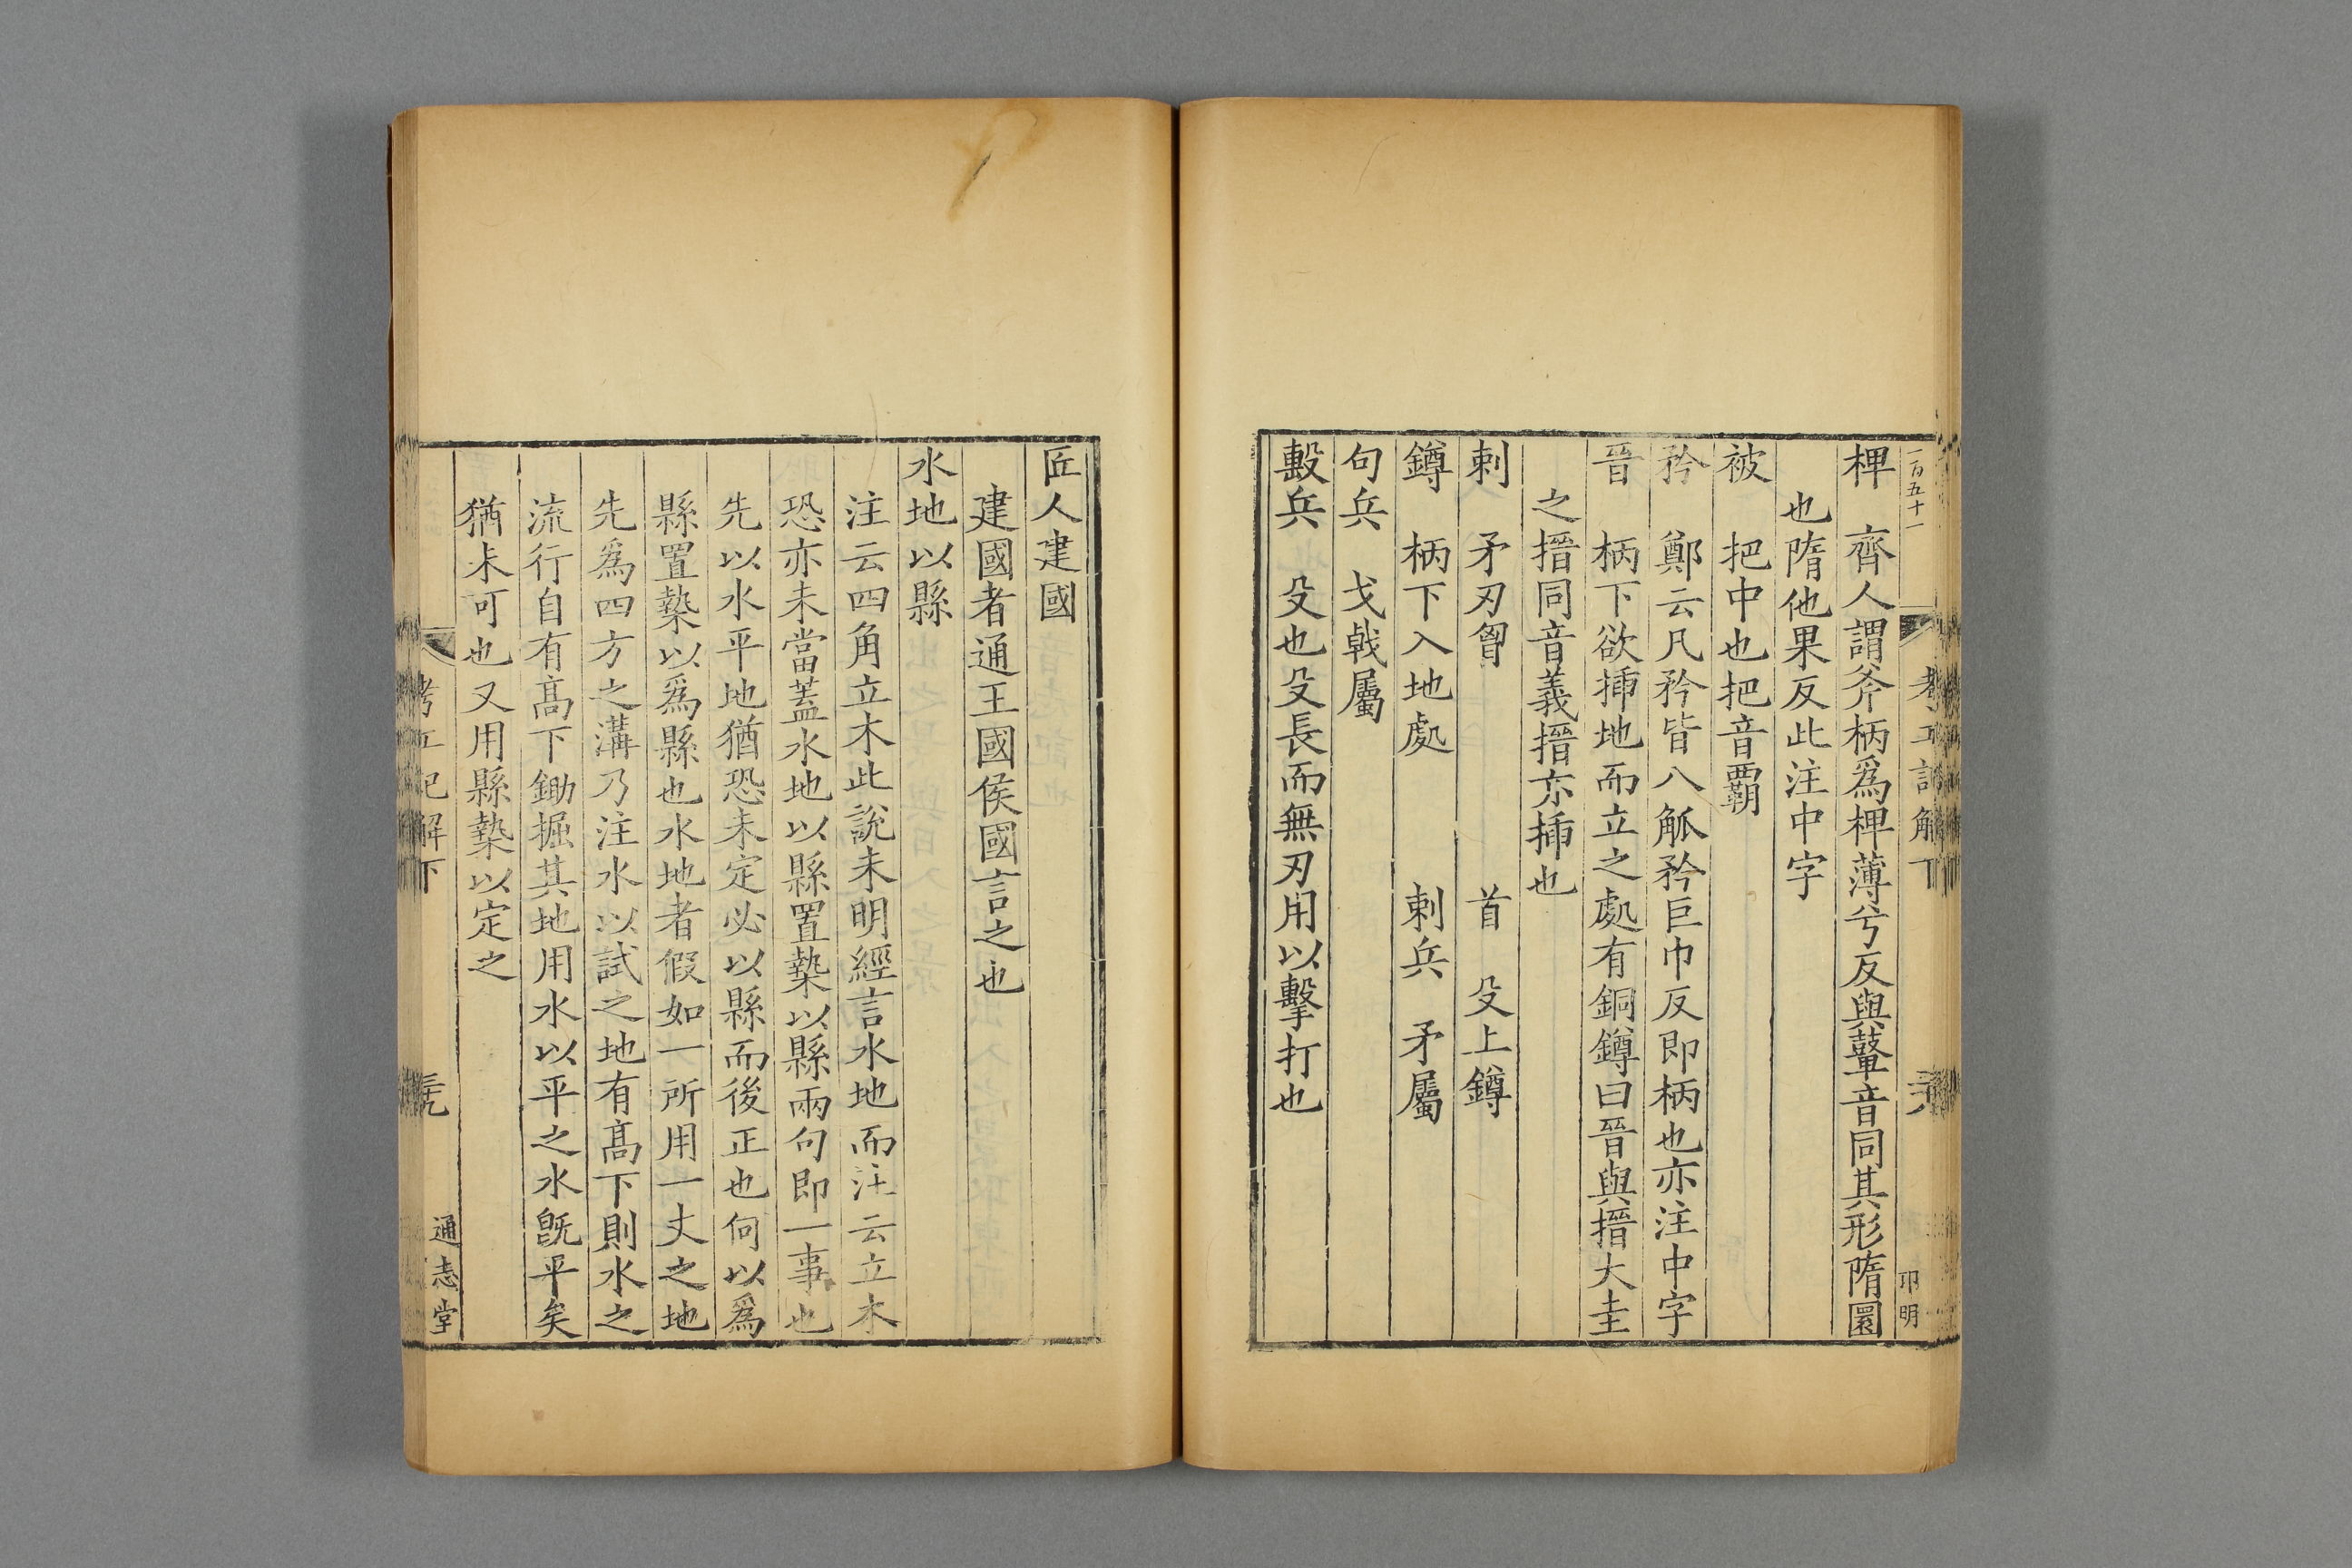 一百五十一
考工記解下
卭明
椑　齊人謂斧柄爲椑薄兮反與鼙音同其形隋圜
也隋他果反此注中字
被　把中也把音霸
矜　鄭云凡矜皆八觚矜巨巾反即柄也亦注中字
晉　柄下欲揷地而立之處有銅鐏曰晉與搢大圭
之搢同音義搢亦揷也
刺　矛刃胷　首　殳上鐏
鐏　柄下入地處　刺兵　矛屬
句兵　戈戟屬
毄兵　殳也殳長而無刃用以擊打也
匠人建國
建國者通王國侯國言之也
水地以縣
注云四角立木此說未明經言水地而注云立木
恐亦未當蓋水地以縣置槷以縣兩句即一事也
先以水平地猶恐未定必以縣而後正也何以爲
縣置槷以爲縣也水地者假如一所用一丈之地
先爲四方之溝乃注水以試之地有高下則水之
流行自有高下鋤掘其地用水以平之水旣平矣
猶未可也又用縣槷以定之
考工記解下
通志堂